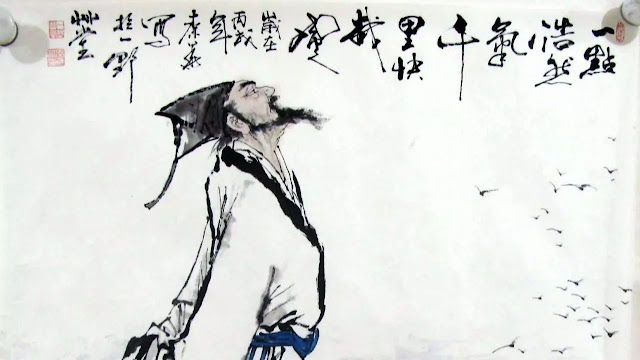 一點
浩然
氣
千
里快
哉
風
歲在
丙戌
年
寫
於一
艸堂